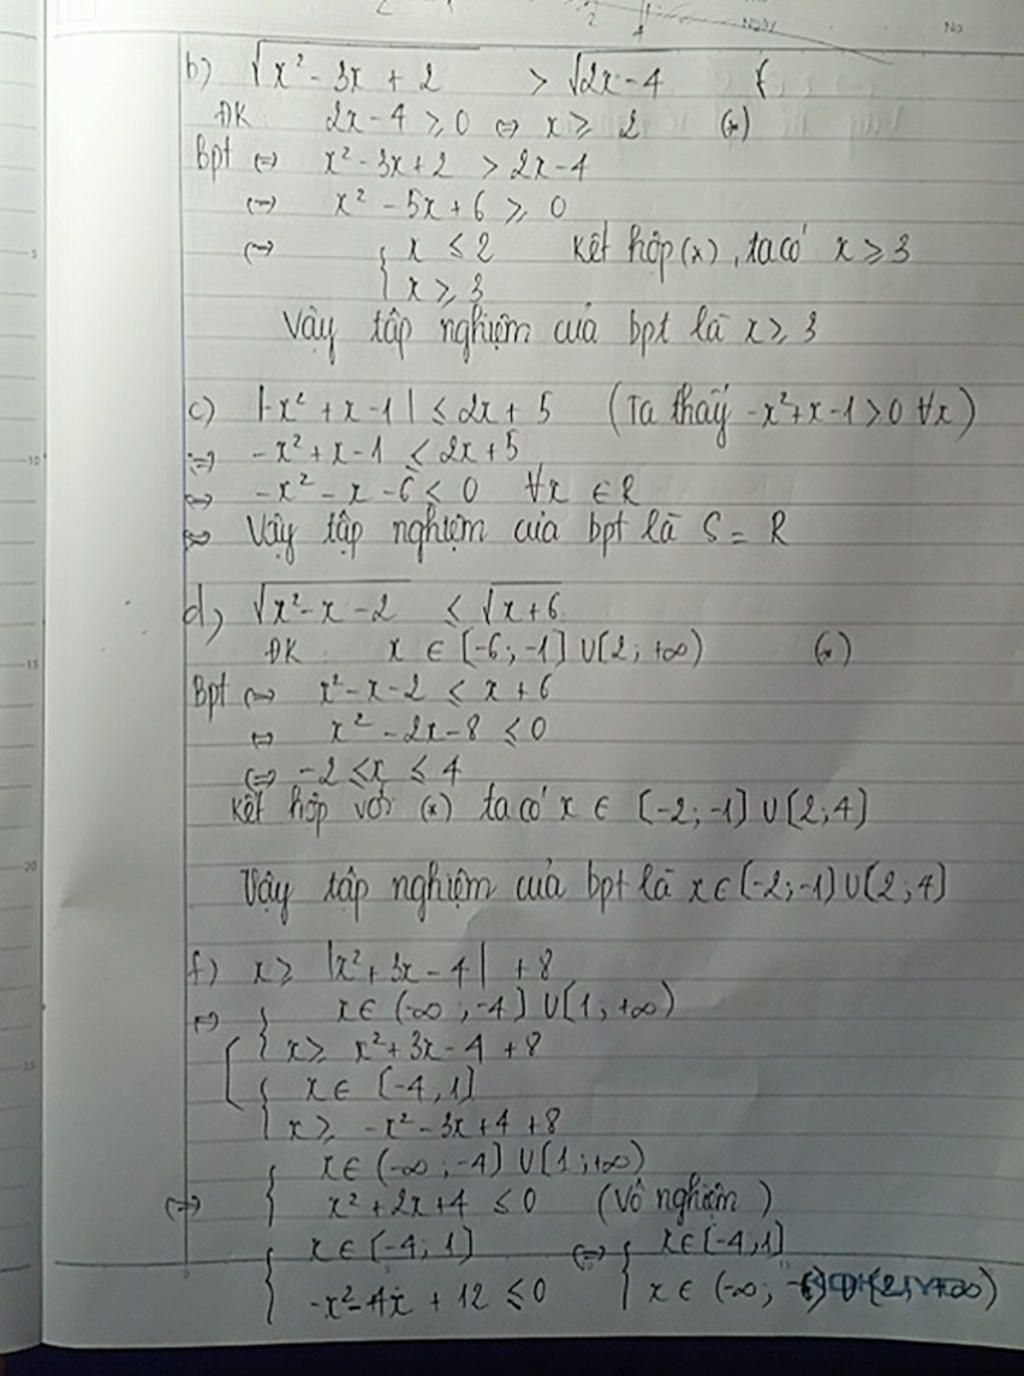 No
b) √x² - 3x + 2 > √2x - 4
ĐK 2x - 4 ≥ 0 ⇔ x ≥ 2 (*)
Bpt ⇔ x² - 3x + 2 > 2x - 4
⇔ x² - 5x + 6 ≥ 0
⇔ { x ≤ 2 Kết hợp (*), ta có x ≥ 3
x ≥ 3
Vậy tập nghiệm của bpt là x ≥ 3
c) |-x² + x - 1| ≤ 2x + 5 (Ta thấy -x²+x-1 > 0 ∀x)
⇔ -x² + x - 1 ≤ 2x + 5
⇔ -x² - x - 6 ≤ 0 ∀x ∈ R
⇔ Vậy tập nghiệm của bpt là S = R
d) √x² - x - 2 ≤ √x + 6
ĐK x ∈ [-6; -1] ∪ [2; +∞) (*)
Bpt ⇔ x² - x - 2 ≤ x + 6
⇔ x² - 2x - 8 ≤ 0
⇔ -2 ≤ x ≤ 4
Kết hợp với (*) ta có x ∈ [-2; -1] ∪ [2; 4]
Vậy tập nghiệm của bpt là x ∈ (-2; -1) ∪ (2; 4)
f) x ≥ |x² + 3x - 4| + 8
⇔ [ { x ∈ (-∞; -4] ∪ [1; +∞)
x ≥ x² + 3x - 4 + 8
{ x ∈ [-4, 1]
x ≥ -x² - 3x + 4 + 8
⇔ { x ∈ (-∞; -4) ∪ [1; +∞)
x² + 2x + 4 ≤ 0 (Vô nghiệm)
{ x ∈ [-4; 1] ⇔ { x ∈ [-4, 1]
-x² - 4x + 12 ≤ 0 x ∈ (-∞;